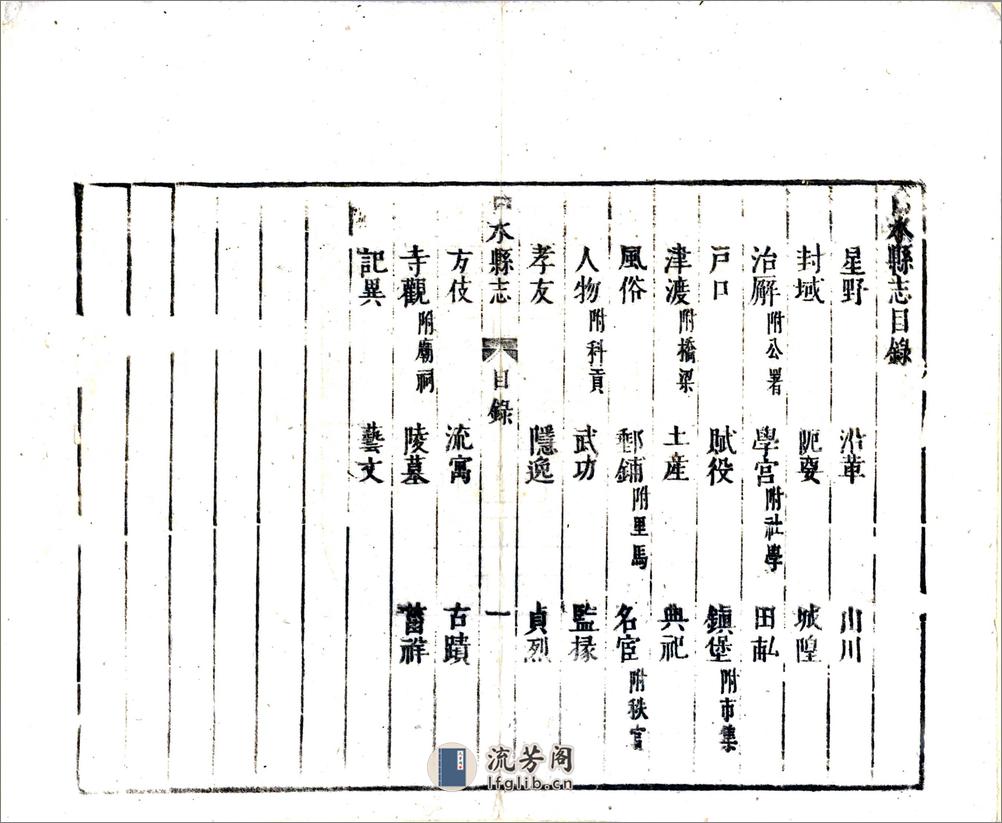 水縣志目錄
星野 沿革 山川
封域 阨要 城隍
治廨附公署 學宮附社學 田畝
戸口 賦役 鎮堡附市集
津渡附橋梁 土産 典祀
風俗 郵鋪附里馬 名宦附秩官
人物附科貢 武功 監掾
孝友 隱逸 貞烈
水縣志 目錄 一
方伎 流寓 古蹟
寺觀附廟祠 陵墓 祥
記異 藝文
流芳阁
lfglib.cn